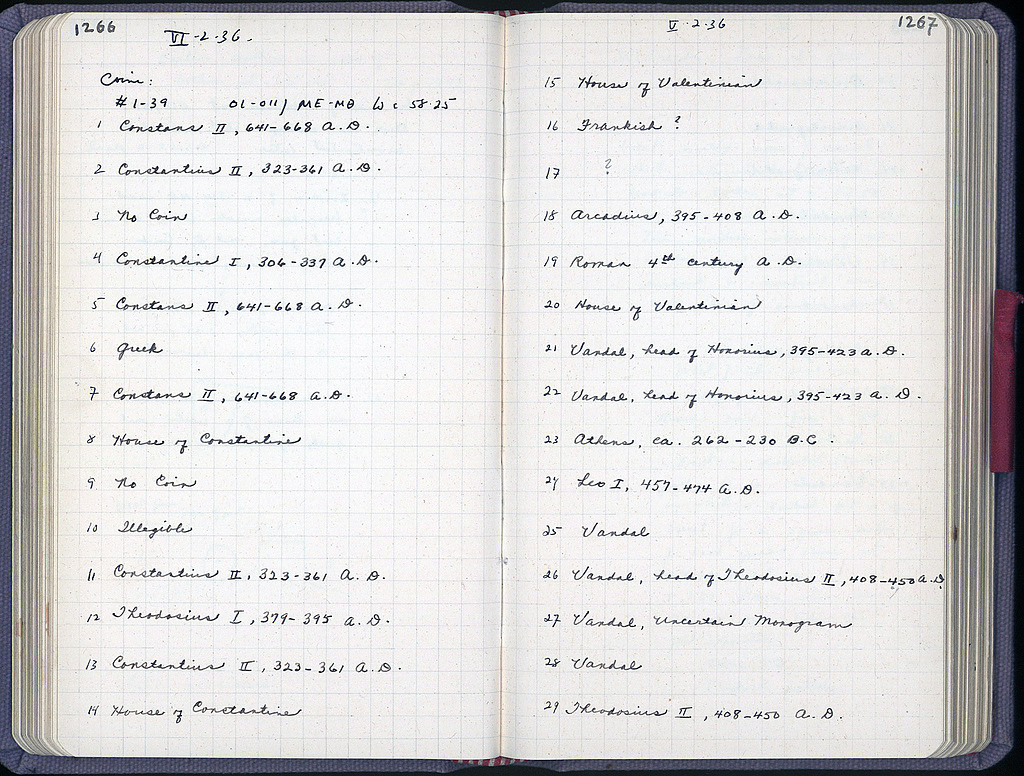 1266
VI-2-36.
Coins:
#1-39 OL-011/ ME-MΘ W: 58.25
1 Constans II, 641-668 A.D.
2 Constantius II, 323-361 A.D.
3 No Coin
4 Constantine I, 306-337 A.D.
5 Constans II, 641-668 A.D.
6 Greek
7 Constans II, 641-668 A.D.
8 House of Constantine
9 No Coin
10 Illegible
11 Constantius II, 323-361 A.D.
12 Theodosius I, 379-395 A.D.
13 Constantius II, 323-361 A.D.
14 House of Constantine
V-2-36
1267
15 House of Valentinian
16 Frankish ?
17 ?
18 Arcadius, 395-408 A.D.
19 Roman 4th century A.D.
20 House of Valentinian
21 Vandal, head of Honorius, 395-423 A.D.
22 Vandal, head of Honorius, 395-423 A.D.
23 Athens, ca. 262-230 B.C.
24 Leo I, 457-474 A.D.
25 Vandal
26 Vandal, head of Theodosius II, 408-450 A.D.
27 Vandal, Uncertain Monogram
28 Vandal
29 Theodosius II, 408-450 A.D.